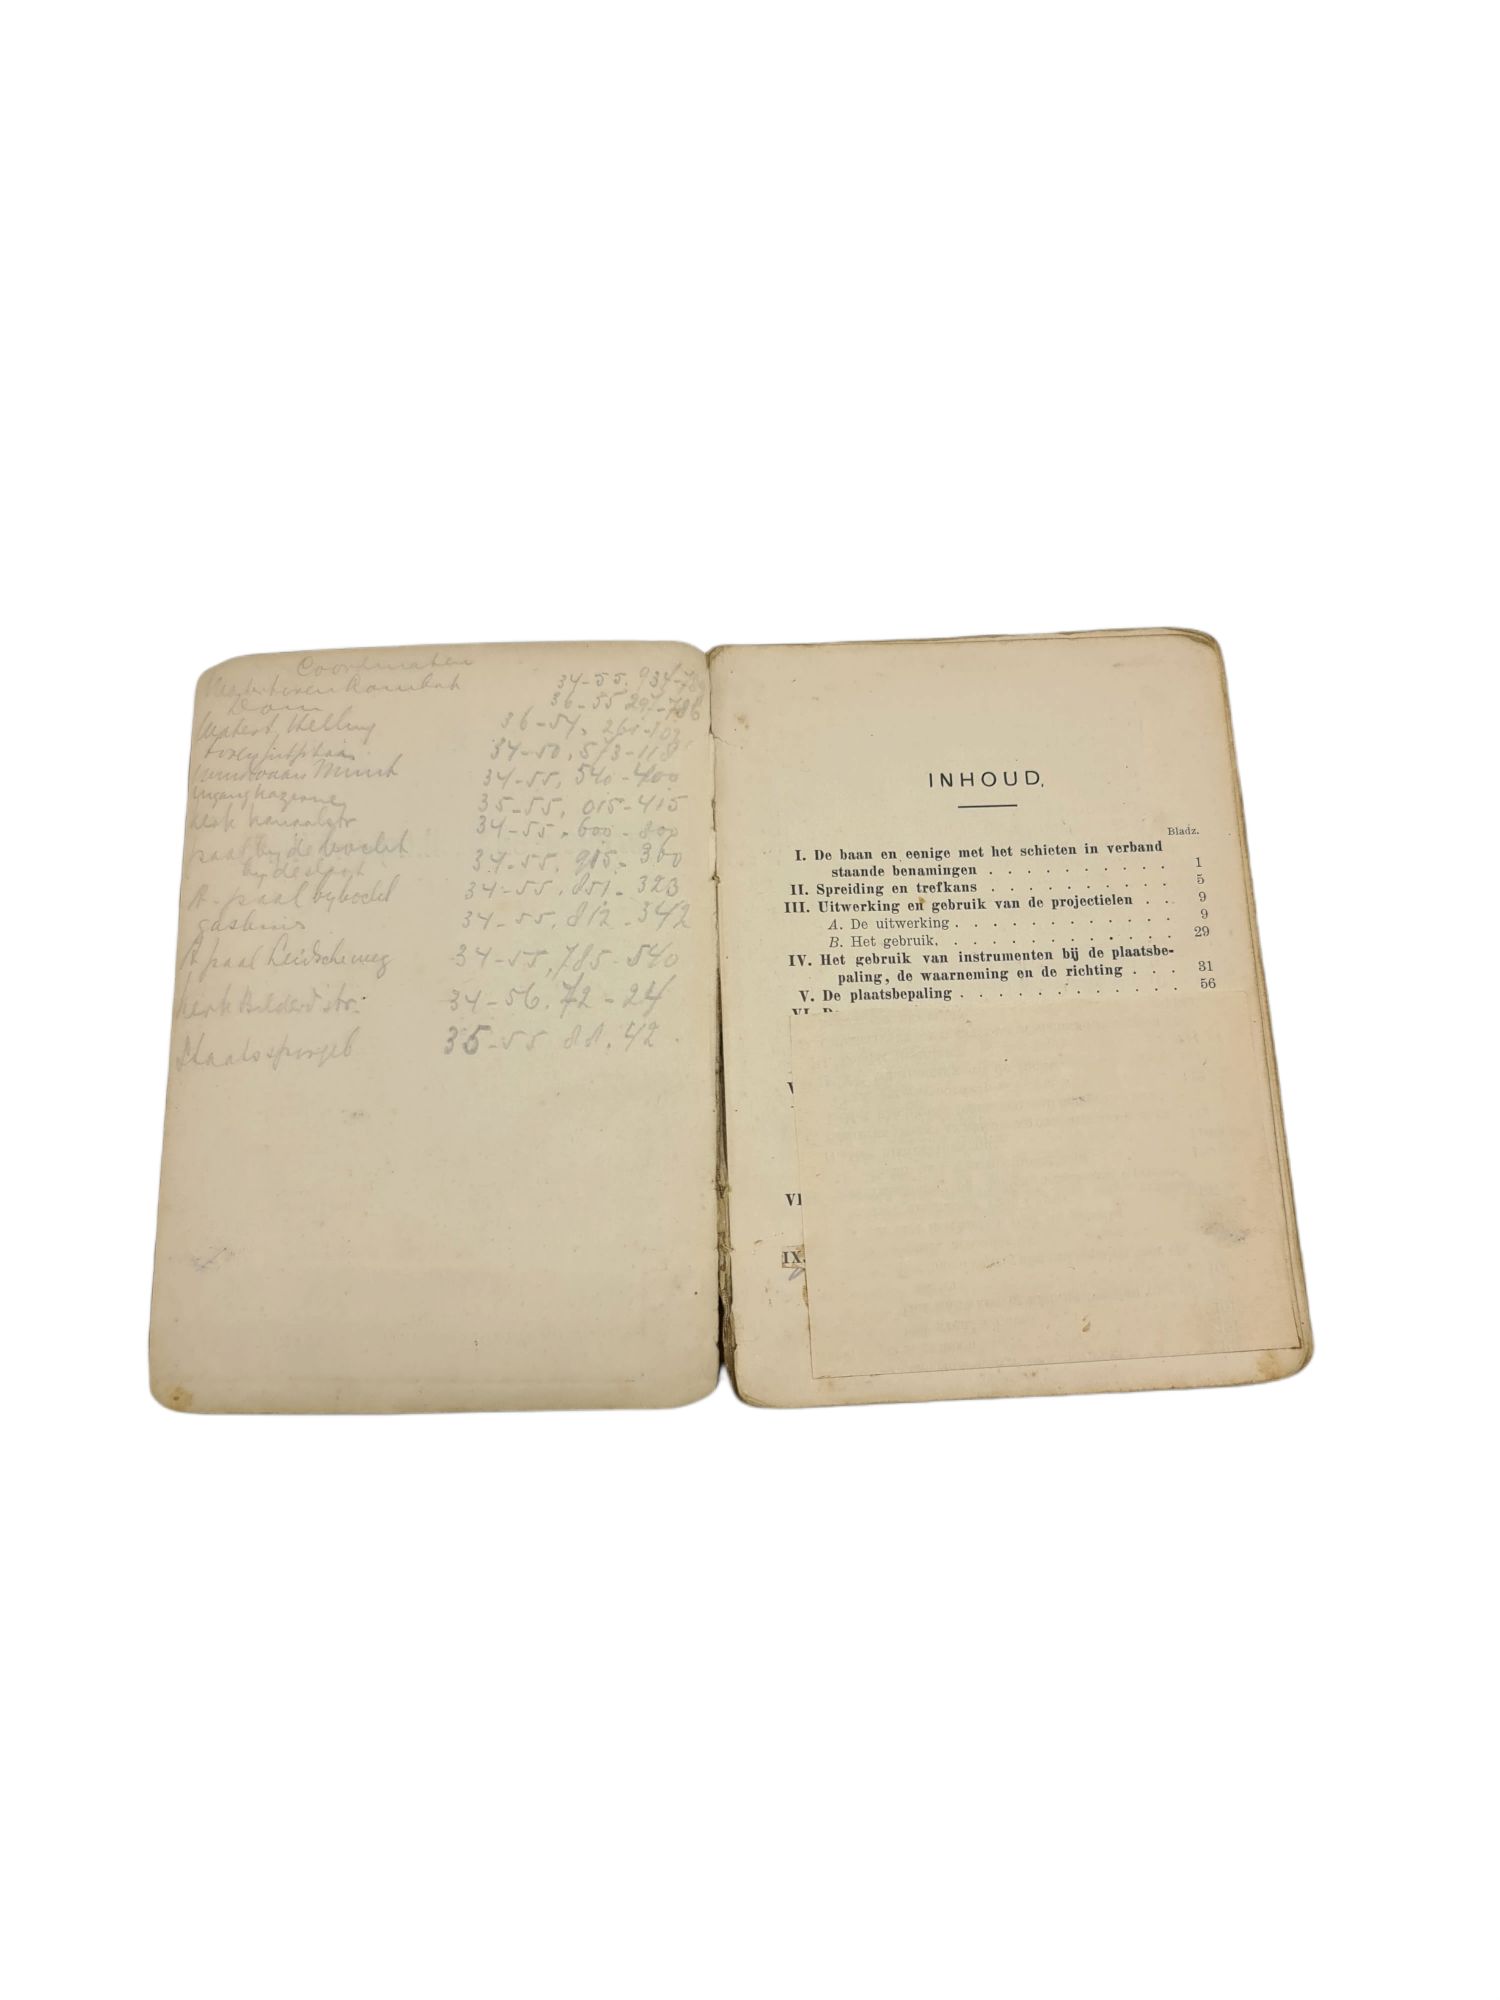 Coordinaten
34-55, 934-78
Dom
36-55 297-786
Watert. Helling
36-54, 261-103
34-50, 573-118
Munt
34-55, 540-400
Ingang Kazerne
35-55, 015-415
Kerk Kanaalstr
34-55, 600-800
paal bij de bocht
bij de sloot
34-55, 915-360
A-paal bij bocht
34-55, 851-323
gashuis
34-55, 812-342
A paal Leidscheweg
34-55, 785-540
Kerk Bilderd. str.
34-56. 72-24
Staatsspoorgeb
35-55 88.42.
INHOUD.
Bladz.
I. De baan en eenige met het schieten in verband
staande benamingen . . . . . . . . . . 1
II. Spreiding en trefkans . . . . . . . . . . 5
III. Uitwerking en gebruik van de projectielen . . 9
A. De uitwerking . . . . . . . . . . . . 9
B. Het gebruik. . . . . . . . . . . . . 29
IV. Het gebruik van instrumenten bij de plaatsbe-
paling, de waarneming en de richting . . . 31
V. De plaatsbepaling . . . . . . . . . . . . 56
VI
V
VI
IX.